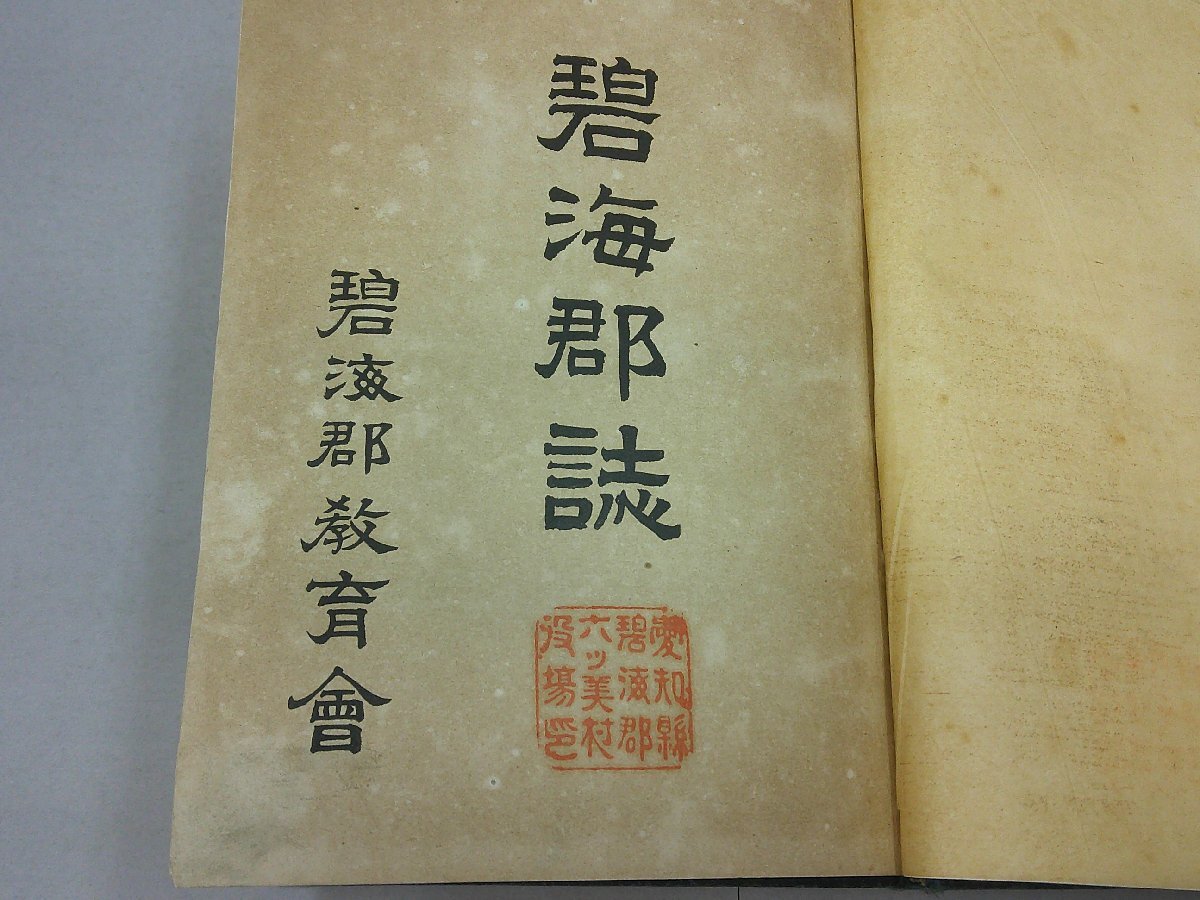 碧海郡誌
碧海郡教育會
愛知縣
碧海郡
六ッ美村
役場印